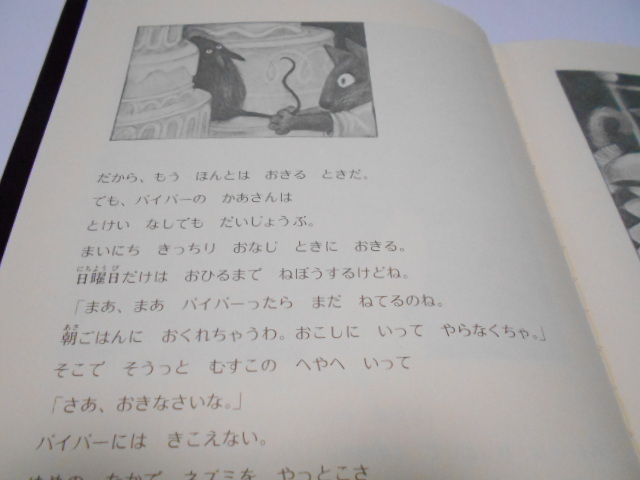 だから、もう ほんとは おきる ときだ。
でも、パイパーの かあさんは
とけい なしでも だいじょうぶ。
まいにち きっちり おなじ ときに おきる。
日曜日だけは おひるまで ねぼうするけどね。
「まあ、まあ パイパーったら まだ ねてるのね。
朝ごはんに おくれちゃうわ。おこしに いって やらなくちゃ。」
そこで そうっと むすこの へやへ いって
「さあ、おきなさいな。」
パイパーには きこえない。
ゆめの なかで ネズミを やっとこさ